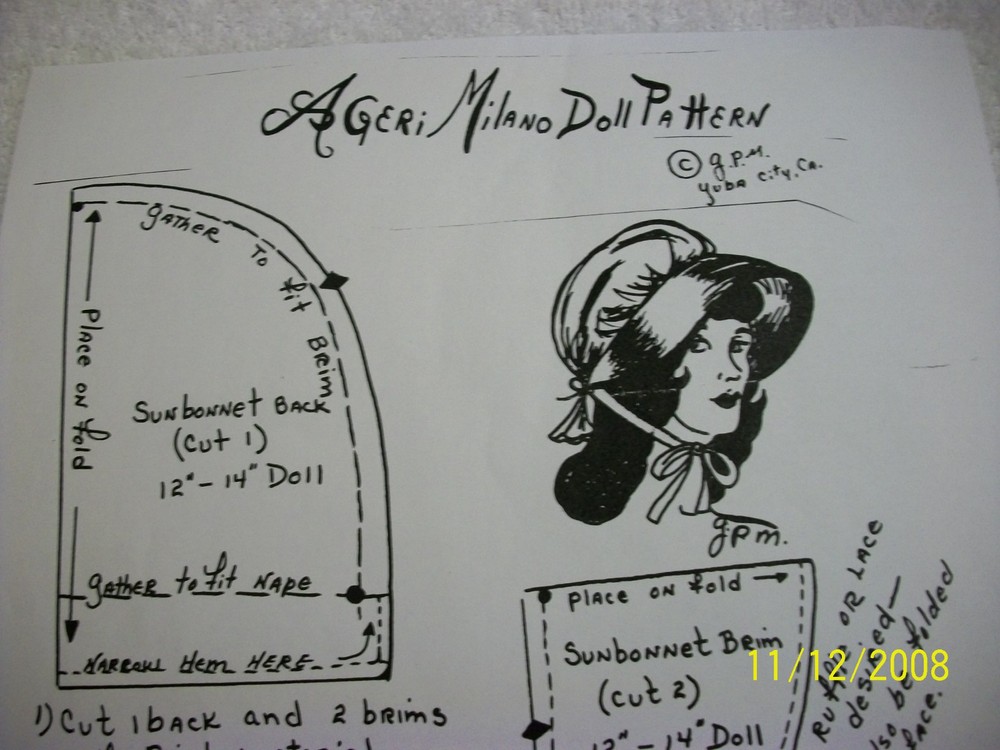 A GERi Milano Doll PaHERN
© g.P.M.
yuba city, Ca.
gather to fit Brim
Place on fold
Sunbonnet Back
(Cut 1)
12"-14" Doll
gather to fit Nape
Narrow Hem Here
g.p.m.
Place on fold
Sunbonnet Brim
(cut 2)
12"-14" Doll
or lace
desired—
folded
lace.
11/12/2008
1) Cut 1 back and 2 brims